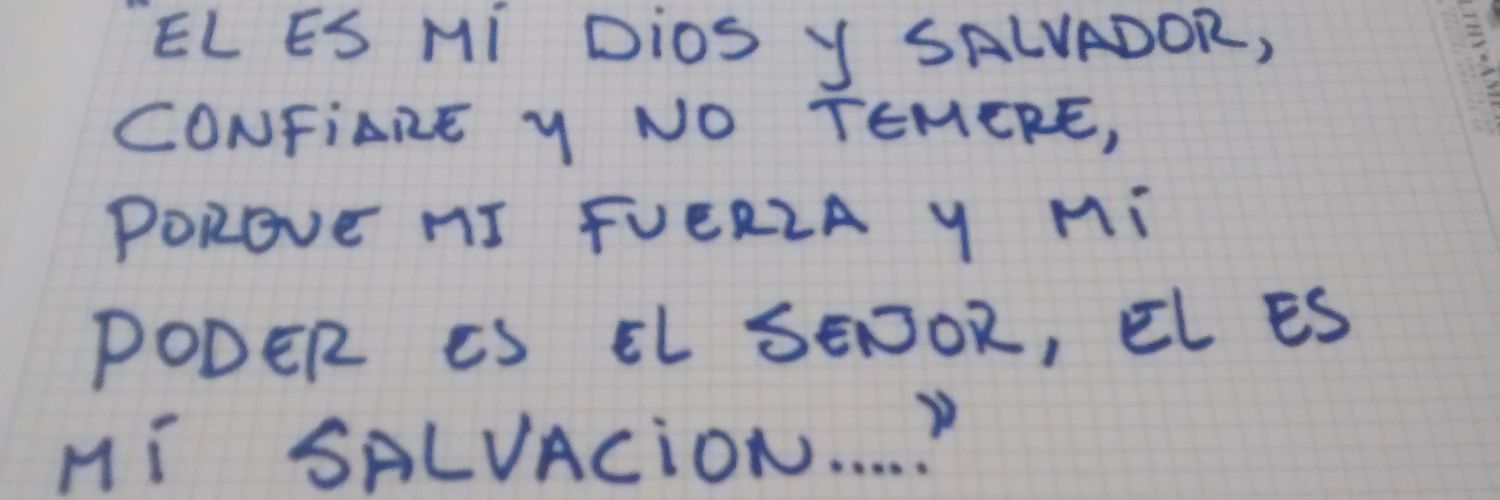 "EL ES MÍ DiOS y SALVADOR,
CONFiARE y NO TEMERE,
PORQUE MI FUERZA y Mi
PODER ES EL SENOR, EL ES
MÍ SALVACiON....."